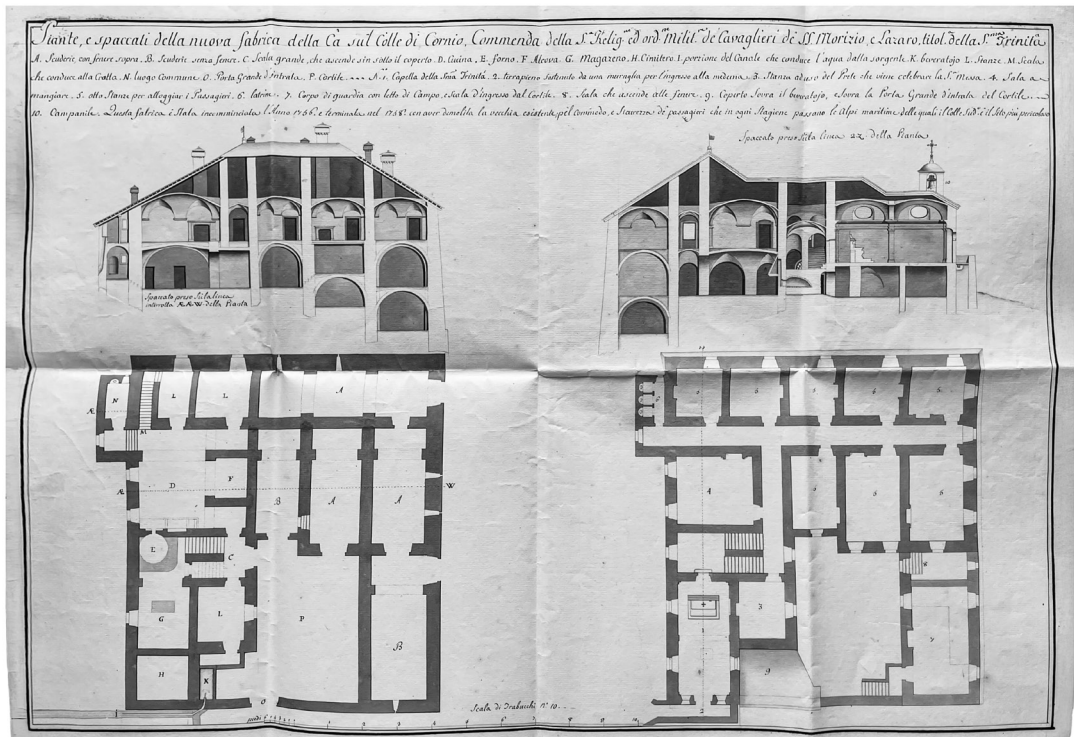 Piante, e spaccati della nuova fabrica della Cà sul Colle di Cornio, Commenda della S.ª Relig.ⁿᵉ ed ord.ⁿᵉ Milit.ᵉ de Cavaglieri di SS.ᵗⁱ Morizio, e Lazaro, titol. della S.ᵐᵃ Trinità
A. Scuderie con fenere sopra. B. Scuderie senza fenere. C. Scala grande, che ascende sin sotto il coperto. D. Cucina. E. forno. F. Alcova. G. Magazeno. H. Cimitero. I. porzione del Canale che conduce l'aqua dalla sorgente. K. beveratojo. L. Stanze. M. Scala
che conduce alla Crotta. N. luogo Commune. O. Porta Grande d'intrata. P. Cortile. N.º 1. Capella della SS.ᵐᵃ Trinità. 2. terrapieno sostenuto da una muraglia per l'ingresso alla medema. 3. Stanza ad uso del Prete che viene celebrare la S.ᵗᵃ Messa. 4. Sala a
mangiare. 5. otto Stanze per alloggiar i Passagieri. 6. latrine. 7. Corpo di guardia con letto di Campo, e Scala d'ingresso dal Cortile. 8. Scala che ascende alle fenere. 9. Coperto Sovra il beveratojo, e Sovra la Porta Grande d'intrata del Cortile.
10. Campanile. Questa fabrica è stata incomminciata l'Anno 1756. e terminata nel 1758. con aver demolita la vecchia esistente, pel commodo, e Sicurezza de' passagieri che in ogni Stagione passono le Alpi maritime delle quali il Colle Sud.º è il Sito più pericoloso
Spaccato preso Sula linea 22. della Pianta
10
Spaccato preso Sula linea
interrotta Æ.Æ.W. della Pianta
N
L
L
A
Æ
M
Æ
D
F
B
A
A
W
E
C
G
L
P
B
H
K
O
6
5
5
5
5
4
5
5
5
8
3
1
7
9
2
Scala di Trabucchi N.º 10
piedi